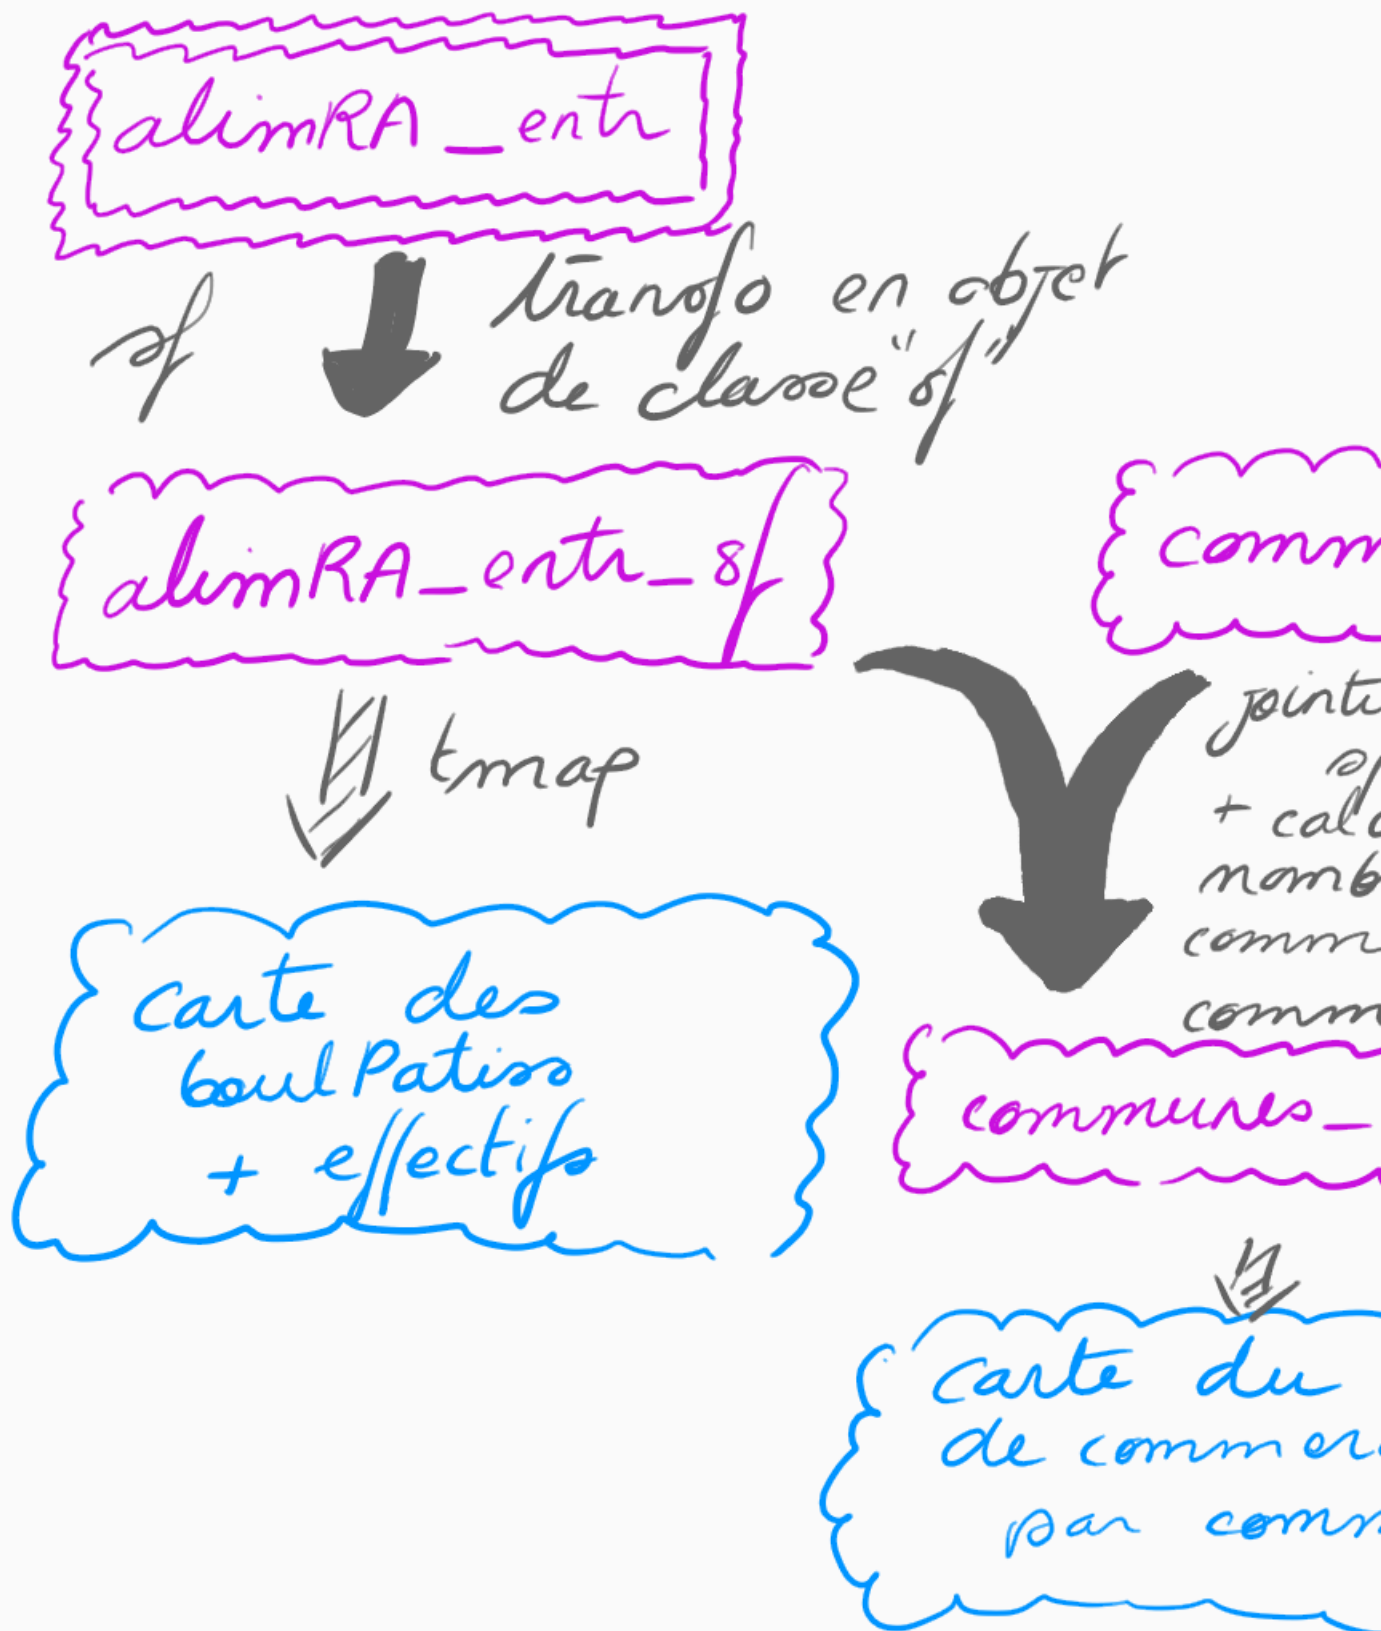 alimRA_entr
sf
transfo en objet
de classe "sf"
alimRA_entr_sf
comm
jointu
sp
+ calc
nomb
comm
comm
tmap
communes_
carte des
boulPatiss
+ effectifs
carte du
de commer
par comm